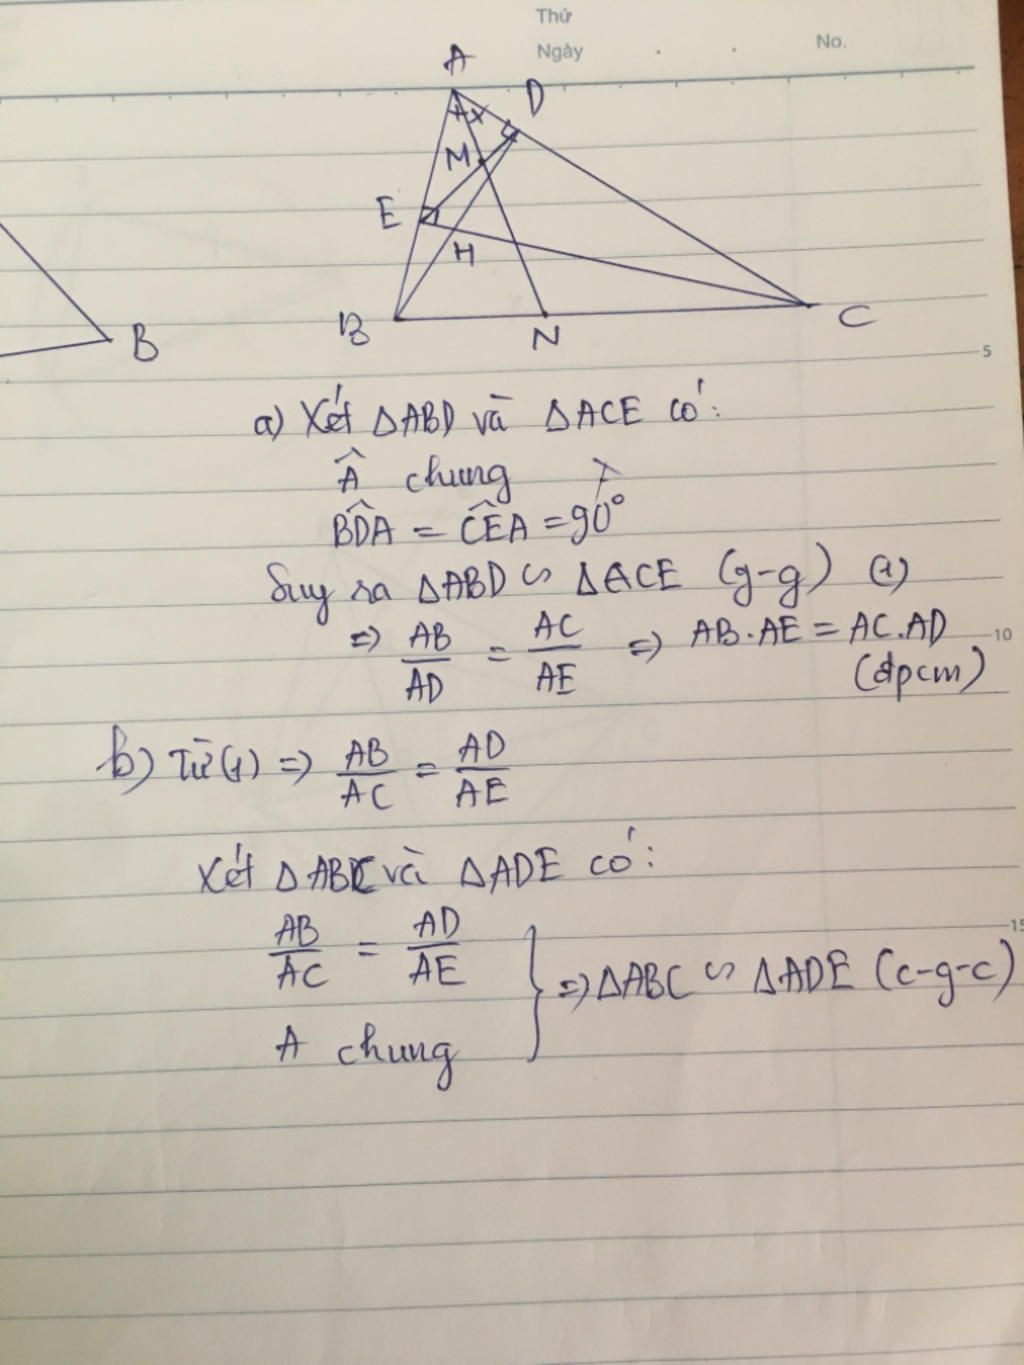 Thứ
Ngày
No.
A
D
M
E
H
B
N
C
B
5
a) Xét ΔABD và ΔACE có:
Â chung
B̂DA = ĈEA = 90°
Suy ra ΔABD ∽ ΔACE (g-g) (1)
=> AB/AD = AC/AE => AB.AE = AC.AD
10
(đpcm)
b) Từ (1) => AB/AC = AD/AE
Xét ΔABC và ΔADE có:
AB/AC = AD/AE
15
=> ΔABC ∽ ΔADE (c-g-c)
A chung